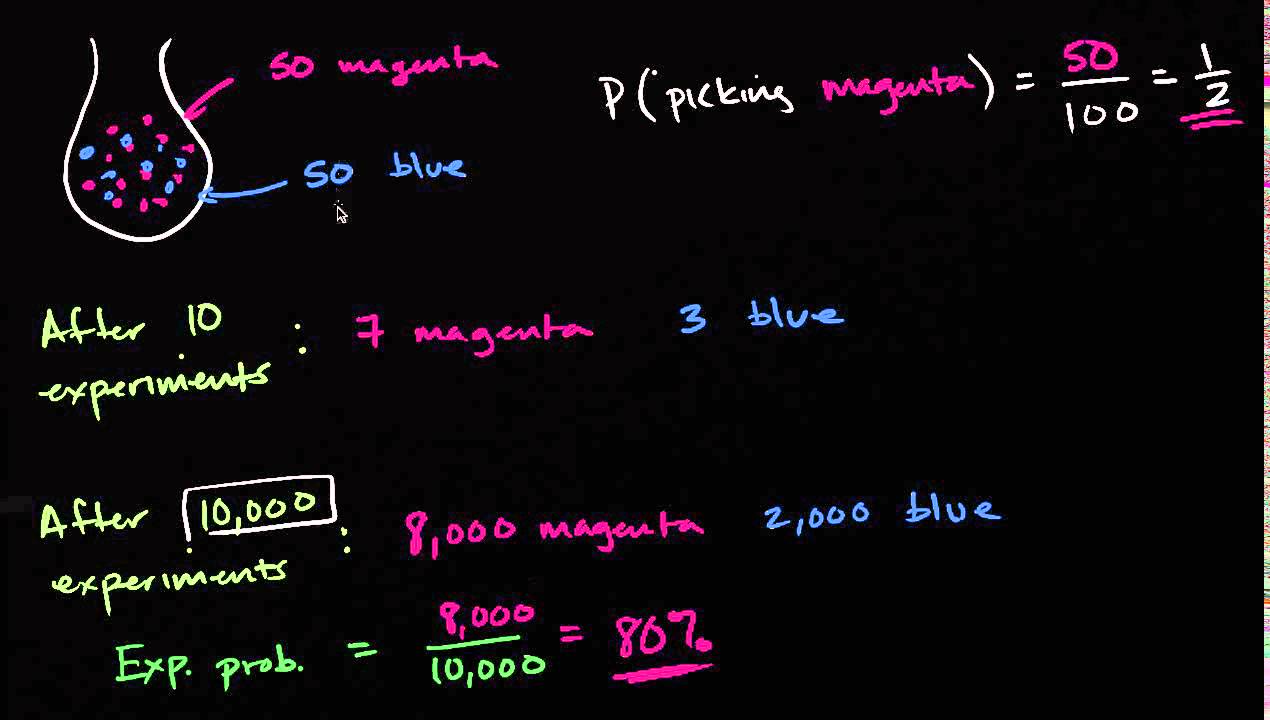 50 magenta
P(picking magenta) = 50/100 = 1/2
50 blue
After 10 experiments : 7 magenta 3 blue
After 10,000 experiments : 8,000 magenta 2,000 blue
Exp. prob. = 8,000/10,000 = 80%